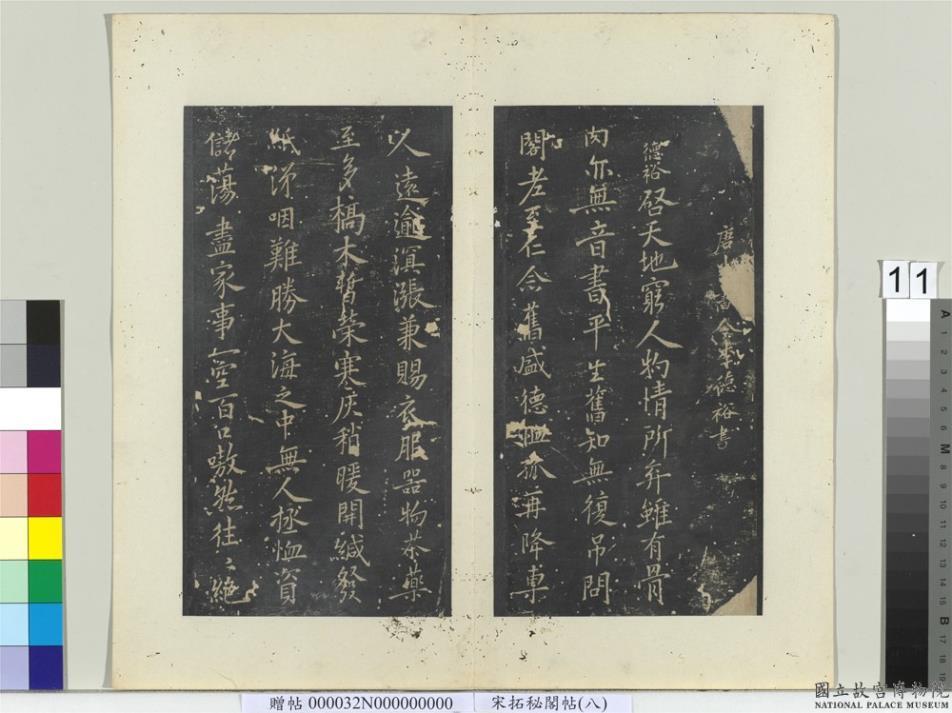 唐 中書令李德裕書
德裕啓天地窮人物情所弃雖有骨
肉亦無音書平生舊知無復吊問
閣老至仁念舊盛德恤孤再降專
人遠逾溟漲兼賜衣服器物茶藥
至多槁木暫榮寒灰稍暖開緘發
紙涕咽難勝大海之中無人拯恤資
儲蕩盡家事一空百口嗷然往〻絶
11
贈帖 000032N000000000
宋拓秘閣帖(八)
國立故宮博物院
NATIONAL PALACE MUSEUM